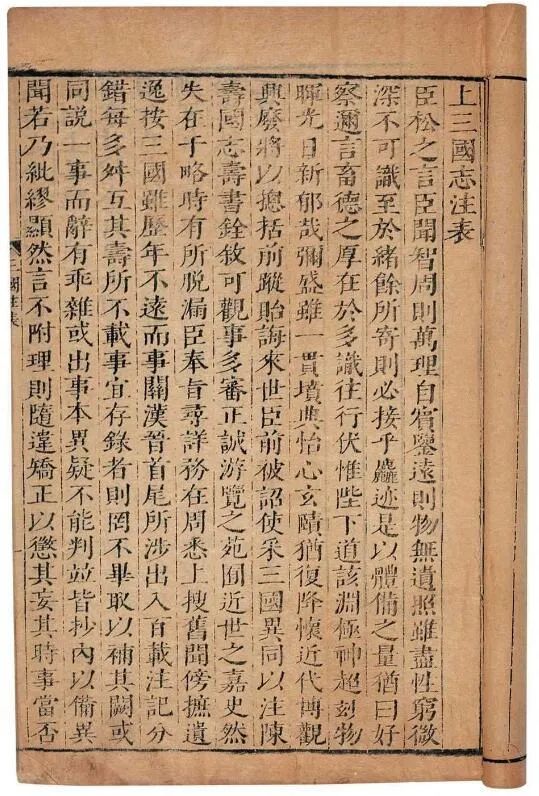 上三國志注表
臣松之言臣聞智周則萬理自賓鑒遠則物無遺照雖盡性窮微
深不可識至於緒餘所寄則必接乎麤迹是以體備之量猶曰好
察邇言畜德之厚在於多識往行伏惟陛下道該淵極神超妙物
暉光日新郁哉彌盛雖一貫墳典怡心玄賾猶復降懷近代博觀
興廢將以摠括前蹤貽誨來世臣前被詔使采三國異同以注陳
壽國志壽書銓敘可觀事多審正誠游覽之苑囿近世之嘉史然
失在于略時有所脫漏臣奉旨尋詳務在周悉上搜舊聞傍摭遺
逸按三國雖歷年不遠而事關漢晉首尾所涉出入百載注記分
錯每多舛互其壽所不載事宜存錄者則罔不畢取以補其闕或
同說一事而辭有乖雜或出事本異疑不能判並皆抄內以備異
聞若乃紕繆顯然言不附理則隨違矯正以懲其妄其時事當否
國注表